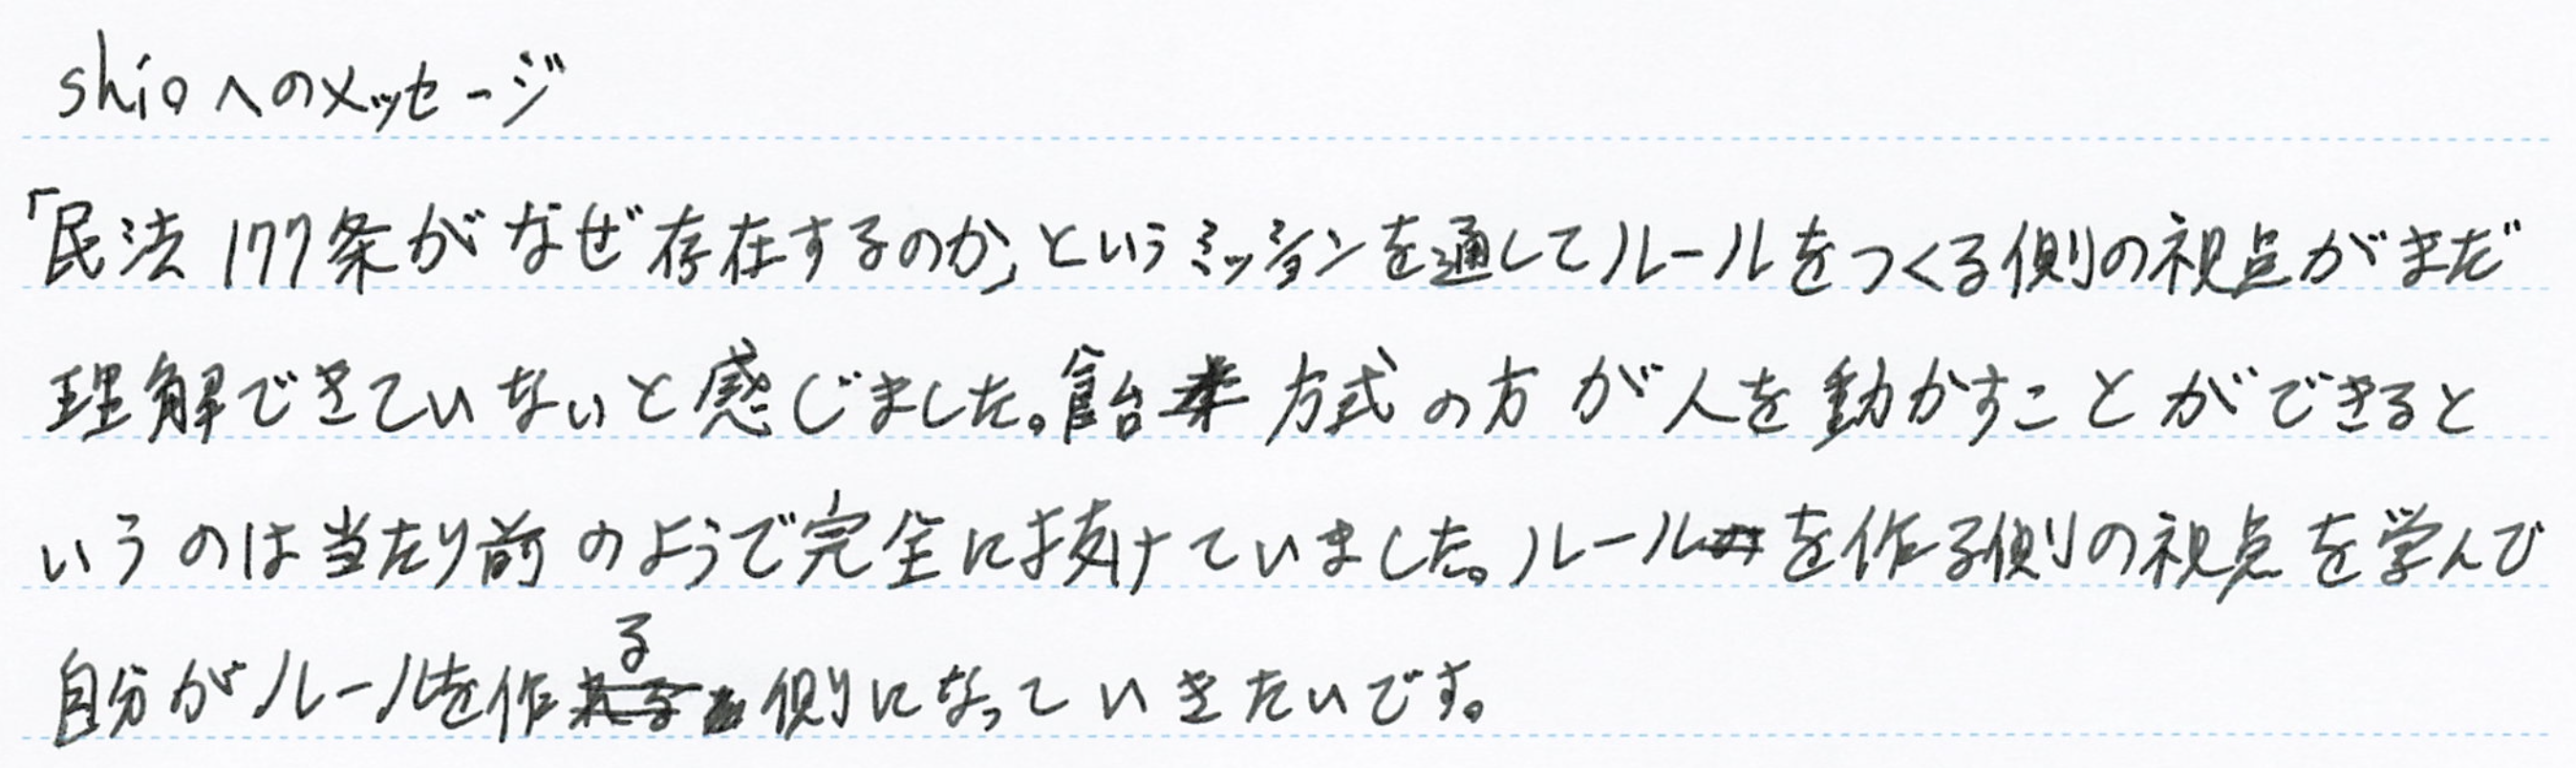 shioへのメッセージ
「民法177条がなぜ存在するのか」というミッションを通してルールをつくる側の視点がまだ
理解できていないと感じました。飴方式の方が人を動かすことができると
いうのは当たり前のようで完全に抜けていました。ルールを作る側の視点を学んで
自分がルールを作る側になっていきたいです。